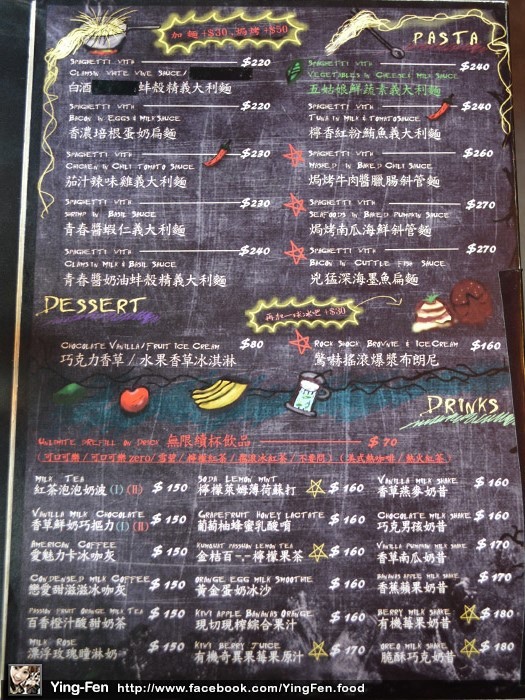 加麵+$30 焗烤+$50
PASTA
SPAGHETTI WITH $220
CLAMS IN WHITE WINE SAUCE/
白酒 蚌殼精義大利麵
SPAGHETTI WITH $220
BACON IN EGGS & MILK SAUCE
香濃培根蛋奶扁麵
SPAGHETTI WITH $230
CHICKEN IN CHILI TOMATO SAUCE
茄汁辣味雞義大利麵
SPAGHETTI WITH $230
SHRIMP IN BASIL SAUCE
青春醬蝦仁義大利麵
SPAGHETTI WITH $240
CLAMS IN MILK & BASIL SAUCE
青春醬奶油蚌殼精義大利麵
SPAGHETTI WITH $240
VEGETABLES IN CHEESE & MILK SAUCE
五姑娘鮮蔬素義大利麵
SPAGHETTI WITH $240
TUNA IN MILK & TOMATO SAUCE
檸香紅粉鮪魚義大利麵
SPAGHETTI WITH $260
MASHED IN BAKED CHILI SAUCE
焗烤牛肉醬臘腸斜管麵
SPAGHETTI WITH $270
SEAFOODS IN BAKED PUMPKIN SAUCE
焗烤南瓜海鮮斜管麵
SPAGHETTI WITH $270
BACON IN CUTTLE FISH SAUCE
兇猛深海墨魚扁麵
DESSERT
再加一球冰吧 +$30
CHOCOLATE VANILLA/FRUIT ICE CREAM $80
巧克力香草/水果香草冰淇淋
ROCK SHOCK BROWNIE & ICE CREAM $160
驚嚇搖滾爆漿布朗尼
DRINKS
UNLIMITE REFILL ON DRINCK 無限續杯飲品 $70
MILK TEA
紅茶泡泡奶波(I)(H) $150
VANILLA MILK CHOCOLATE
香草鮮奶巧摳力(I)(H) $150
AMERICAN COFFEE
愛魅力卡冰咖灰 $150
CONDENSED MILK COFFEE
戀愛甜滋滋冰咖灰 $150
PASSION FRUIT ORANGE MILK TEA
百香橙汁酸甜奶茶 $150
MILK ROSE
漂浮玫瑰瞳淋奶 $150
SODA LEMON MINT
檸檬萊姆薄荷蘇打 $160
GRAPEFRUIT HONEY LACTATE
葡萄柚蜂蜜乳酸嗩 $160
KUMQUAT PASSION LEMON TEA
金桔百一一檸檬果茶 $160
ORANGE EGG MILK SMOOTHIE
黃金蛋奶冰沙 $160
KIWI APPLE BANANAS ORANGE
現切現榨綜合果汁 $160
KIWI BERRY JUICE
有機奇異果莓果原汁 $170
VANILLA MILK SHAKE
香草燕麥奶昔 $160
CHOCOLATE MILK SHAKE
巧克男孩奶昔 $160
VANILLA PUMPKIN MILK SHAKE
香草南瓜奶昔 $170
BANANAS APPLE MILK SHAKE
香蕉蘋果奶昔 $170
BERRY MILK SHAKE
有機莓果奶昔 $180
OREO MILK SHAKE
脆酥巧克奶昔 $180
Ying-Fen http://www.facebook.com/YingFen.food